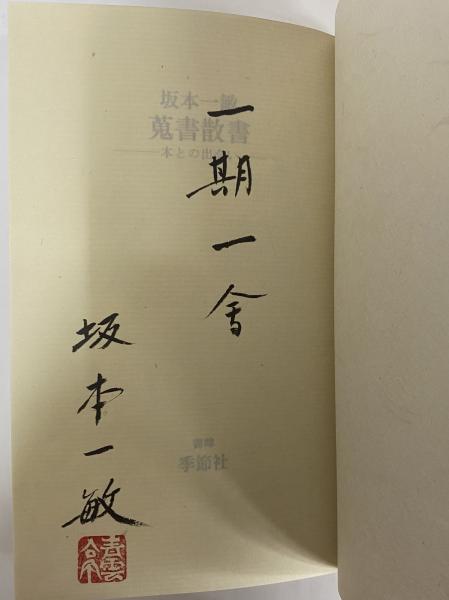 一期一會
坂本一敏
坂本一敏
蒐書散書
本との出会い
季節社